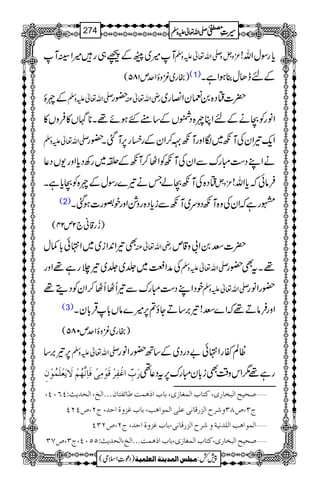 سیرتِ مصطفیٰ صلی اللہ تعالیٰ علیہ وسلم 274
یا رسول اللہ! عزوجل وصلی اللہ تعالیٰ علیہ وسلم آپ میری پیٹھ کے پیچھے ہی رہیں میرا سینہ آپ
کے لئے ڈھال بنا ہوا ہے۔(1) (بخاری غزوۂ احد ص ۵۸۱)
حضرت قتادہ بن نعمان انصاری رضی اللہ تعالیٰ عنہ حضور صلی اللہ تعالیٰ علیہ وسلم کے چہرۂ
انور کو بچانے کے لئے اپنا چہرہ دشمنوں کے سامنے کئے ہوئے تھے۔ ناگہاں کافروں کا
ایک تیر ان کی آنکھ میں لگا اور آنکھ بہہ کر ان کے رخسار پر آگئی۔ حضور صلی اللہ تعالیٰ علیہ وسلم
نے اپنے دست مبارک سے ان کی آنکھ کو اٹھا کر آنکھ کے حلقہ میں رکھ دیا اور یوں دعا
فرمائی کہ یا اللہ! عزوجل قتادہ کی آنکھ بچا لے جس نے تیرے رسول کے چہرہ کو بچایا ہے۔
مشہور ہے کہ ان کی وہ آنکھ دوسری آنکھ سے زیادہ روشن اور خوبصورت ہوگئی۔(2)
(زرقانی ج۲ ص ۴۲)
حضرت سعد بن ابی وقاص رضی اللہ تعالیٰ عنہ بھی تیر اندازی میں انتہائی با کمال
تھے۔ یہ بھی حضور صلی اللہ تعالیٰ علیہ وسلم کی مدافعت میں جلدی جلدی تیر چلا رہے تھے اور
حضور انور صلی اللہ تعالیٰ علیہ وسلم خود اپنے دست مبارک سے تیر اٹھا اٹھا کر ان کو دیتے تھے
اور فرماتے تھے کہ اے سعد! تیر برساتے جاؤ تم پر میرے ماں باپ قربان۔(3)
(بخاری غزوۂ احد ص ۵۸۰)
ظالم کفار انتہائی بے دردی کے ساتھ حضور انور صلی اللہ تعالیٰ علیہ وسلم پر تیر برسا
رہے تھے مگر اس وقت بھی زبان مبارک پر یہ دعا تھی رَبِّ اغْفِرْ قَوْمِیْ فَاِنَّهُمْ لَا یَعْلَمُوْنَ
صحیح البخاری، کتاب المغازی، باب اذھمت طائفتان...الخ، الحدیث:۴۰۶۴،
ج۳، ص۳۸ و شرح الزرقانی علی المواھب، باب غزوۃ احد، ج۲، ص ۴۲۴
المواھب اللدنیۃ و شرح الزرقانی، باب غزوۃ احد، ج۲، ص ۴۳۲
صحیح البخاری، کتاب المغازی، باب اذھمت...الخ، الحدیث:۴۰۵۵، ج۳، ص۳۷
پیش کش: مجلس المدینۃ العلمیۃ (دعوتِ اسلامی)